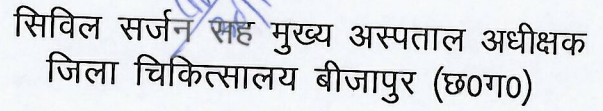 सिविल सर्जन सह मुख्य अस्पताल अधीक्षक
जिला चिकित्सालय बीजापुर (छ0ग0)